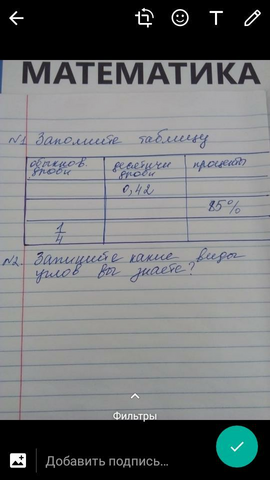 МАТЕМАТИКА
N1 Заполните таблицу
обыкнов. десятичн проценты
дроби дроби
0,42
85%
1/4
N2. Запишите какие виды
углов вы знаете?
Фильтры
Добавить подпись...